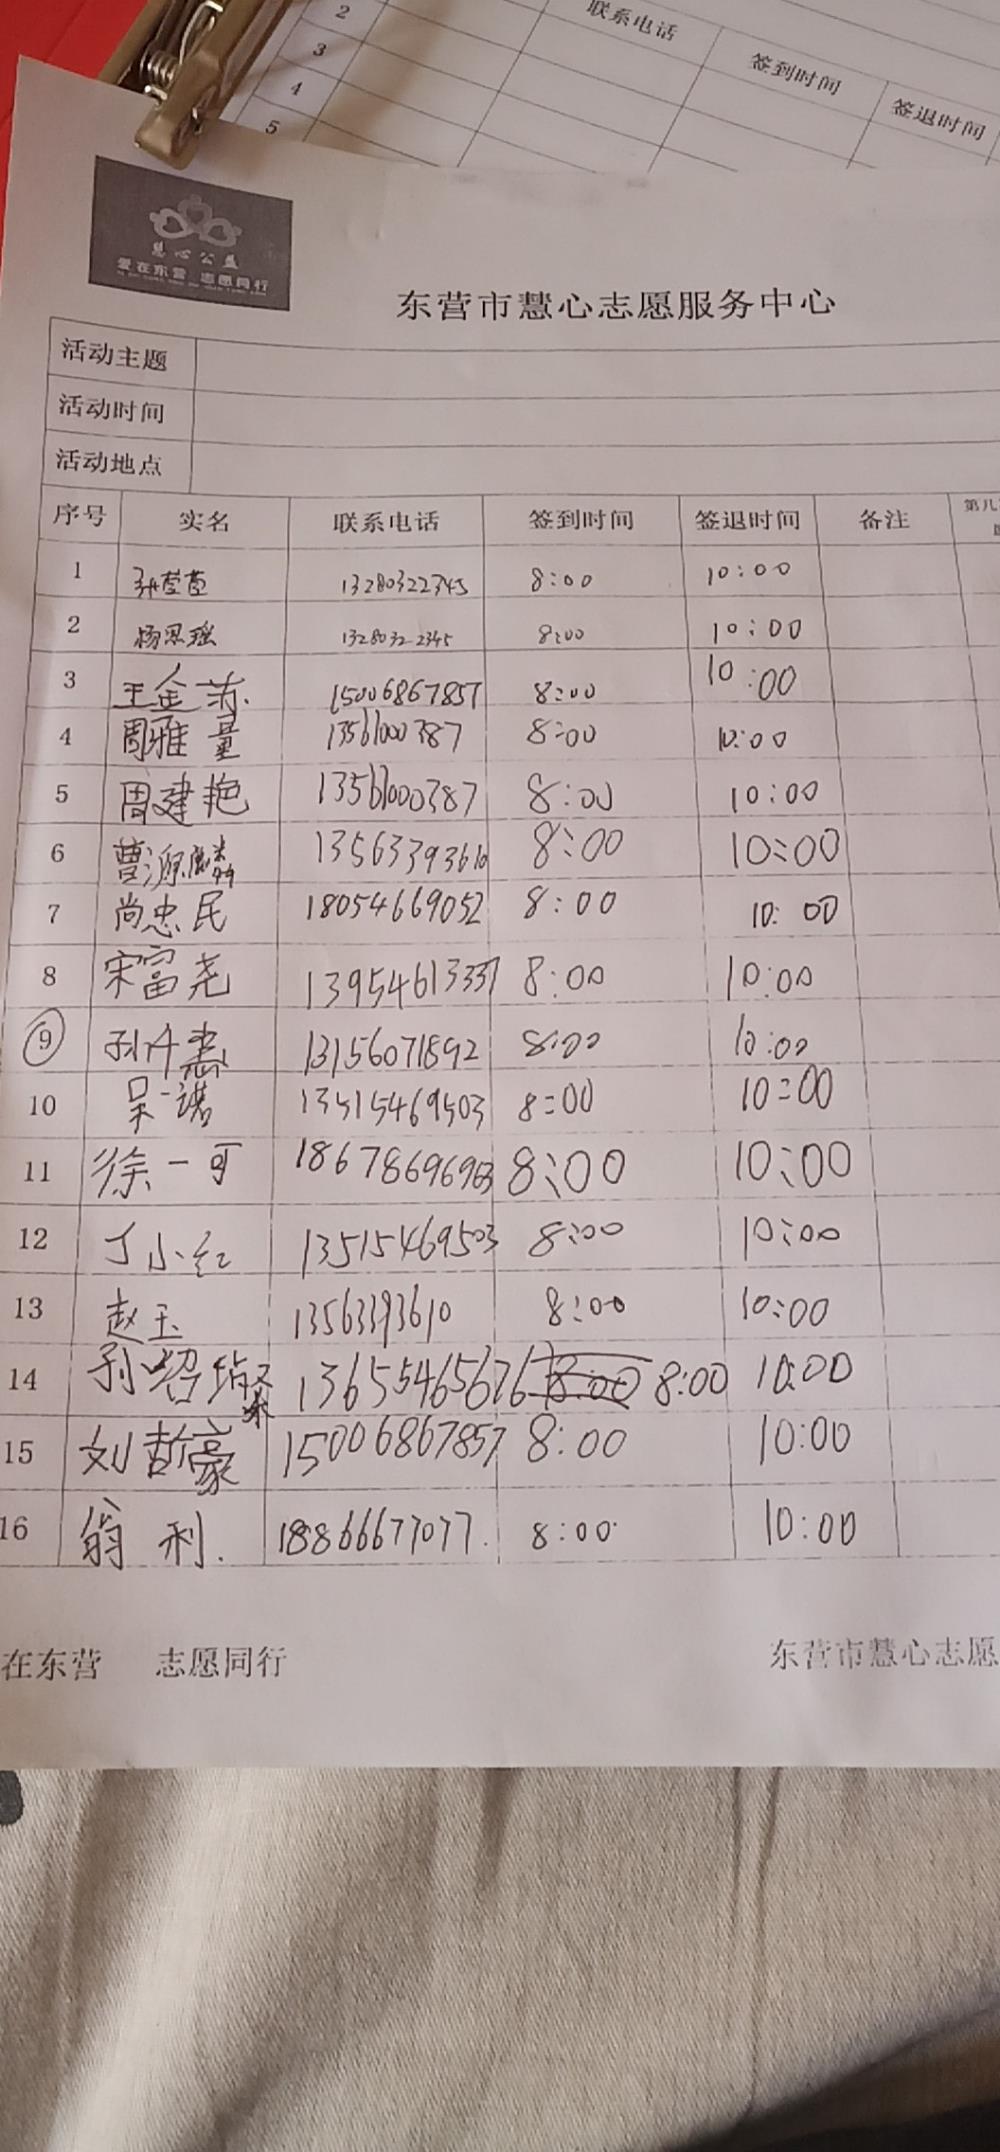 2 联系电话
3 签到时间
4 签退时间
5
慧心公益
爱在东营 志愿同行
东营市慧心志愿服务中心
活动主题
活动时间
活动地点
序号 实名 联系电话 签到时间 签退时间 备注 第几
1 13280322345 8:00 10:00
2 杨思瑶 13280322345 8:00 10:00
3 王金 15006867857 8:00 10:00
4 周雅量 13561000387 8:00 10:00
5 周建艳 13561000387 8:00 10:00
6 曹源麟 13563393610 8:00 10:00
7 尚忠民 18054669052 8:00 10:00
8 宋富尧 13954613337 8:00 10:00
9 孙 13156071892 8:00 10:00
10 吴一诺 13515469503 8:00 10:00
11 徐一可 18678696963 8:00 10:00
12 丁小红 13515469503 8:00 10:00
13 赵玉 13563393610 8:00 10:00
14 孙绍 13655465676 8:00 8:00 10:00
15 刘哲豪 15006867857 8:00 10:00
16 翁利 18866677077 8:00 10:00
在东营 志愿同行 东营市慧心志愿